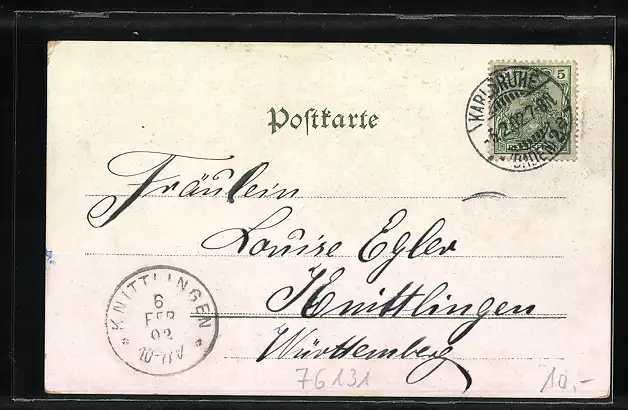 Postkarte
5
KARLSRUHE
BADEN
Fräulein
Louise Egler
Knittlingen
Württemberg
KNITTLINGEN
6
FEB
02
10-11V
76131
10,-